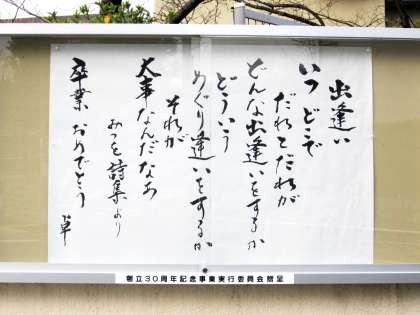 出逢い
いつ どこで
だれとだれが
どんな出逢いをするか
どういう
めぐり逢いをするか
それが
大事なんだなあ
みつを詩集より
卒業 おめでとう
創立30周年記念事業実行委員会贈呈